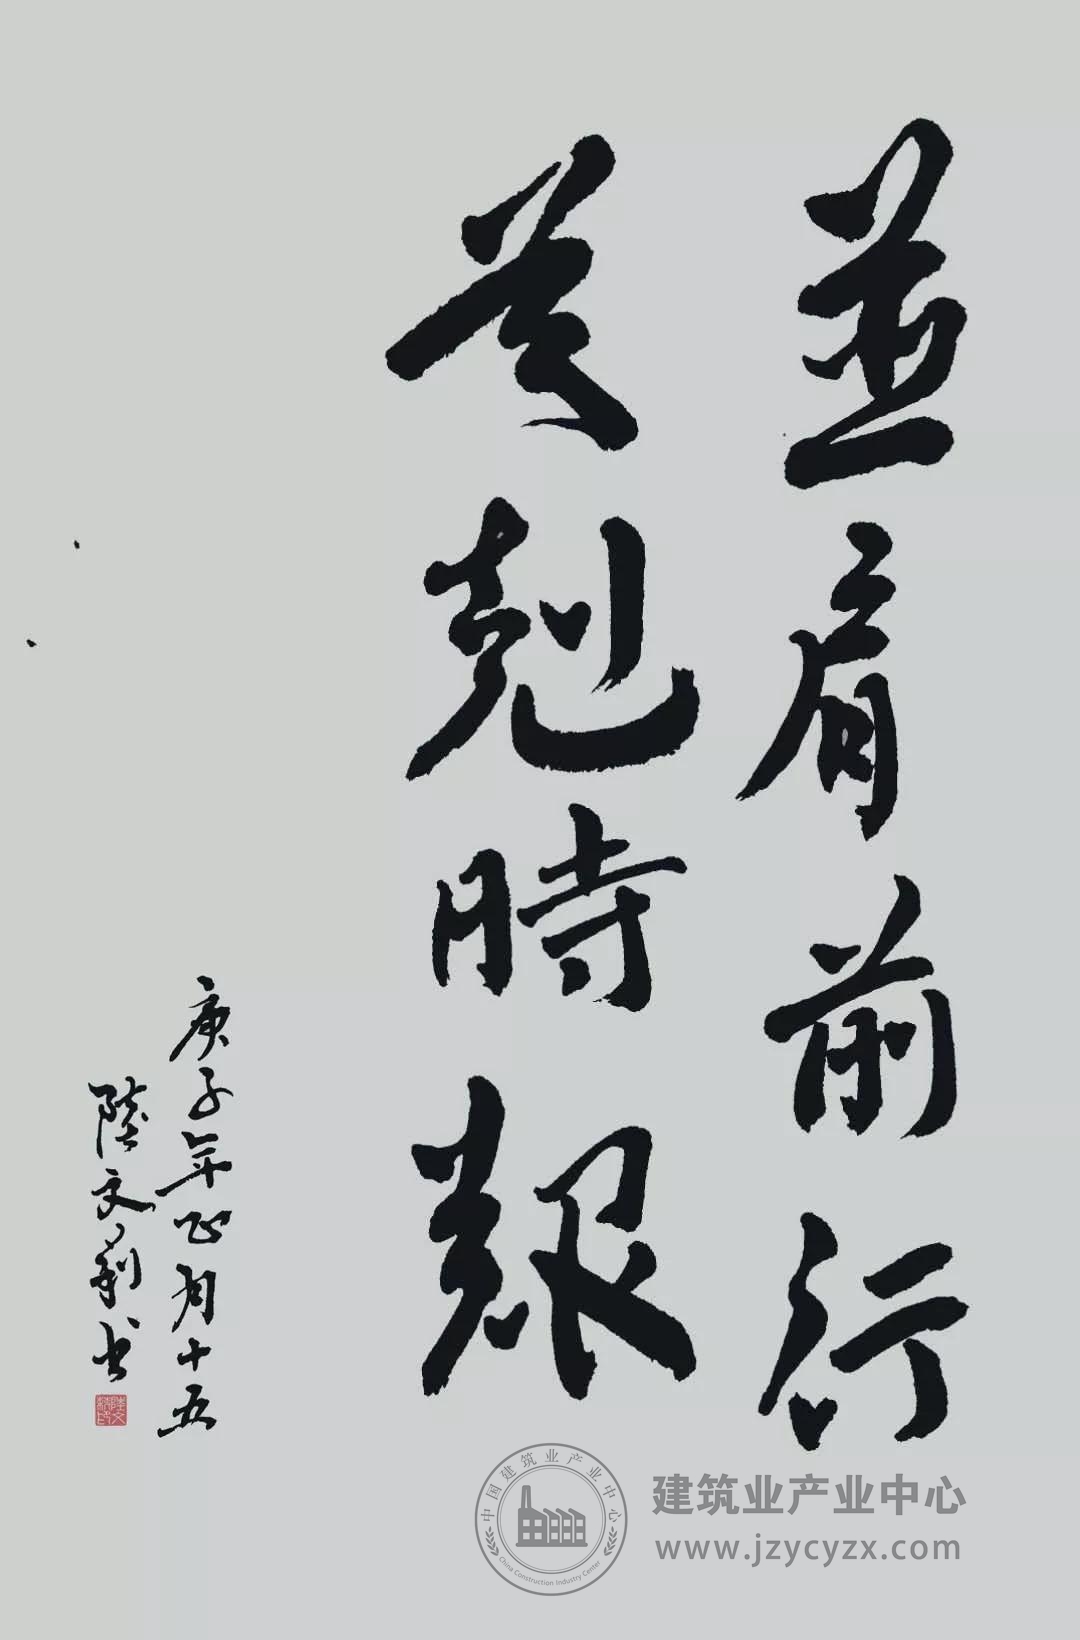 並肩前行
共剋時艱
庚子年正月十五
陸文莉书
中国建筑业产业中心
China Construction Industry Center
建筑业产业中心
www.jzycyzx.com